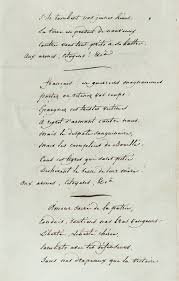 S'ils tombent nos jeunes héros
La terre en produit de nouveaux
Contre vous tout prêts à se battre.
Aux armes, Citoyens !
Français, en guerriers magnanimes
portez ou retenez vos coups
Epargnez ces tristes victimes
A regret s'armant contre nous
Mais le despote sanguinaire,
Mais les complices de Bouillé
Tous ces tigres qui sans pitié
Déchirent le sein de leur mère
Aux armes, Citoyens,
Amour sacré de la patrie,
Conduis, soutiens nos bras vengeurs
Liberté, Liberté chérie
Combats avec tes défenseurs
Sous nos drapeaux que la victoire